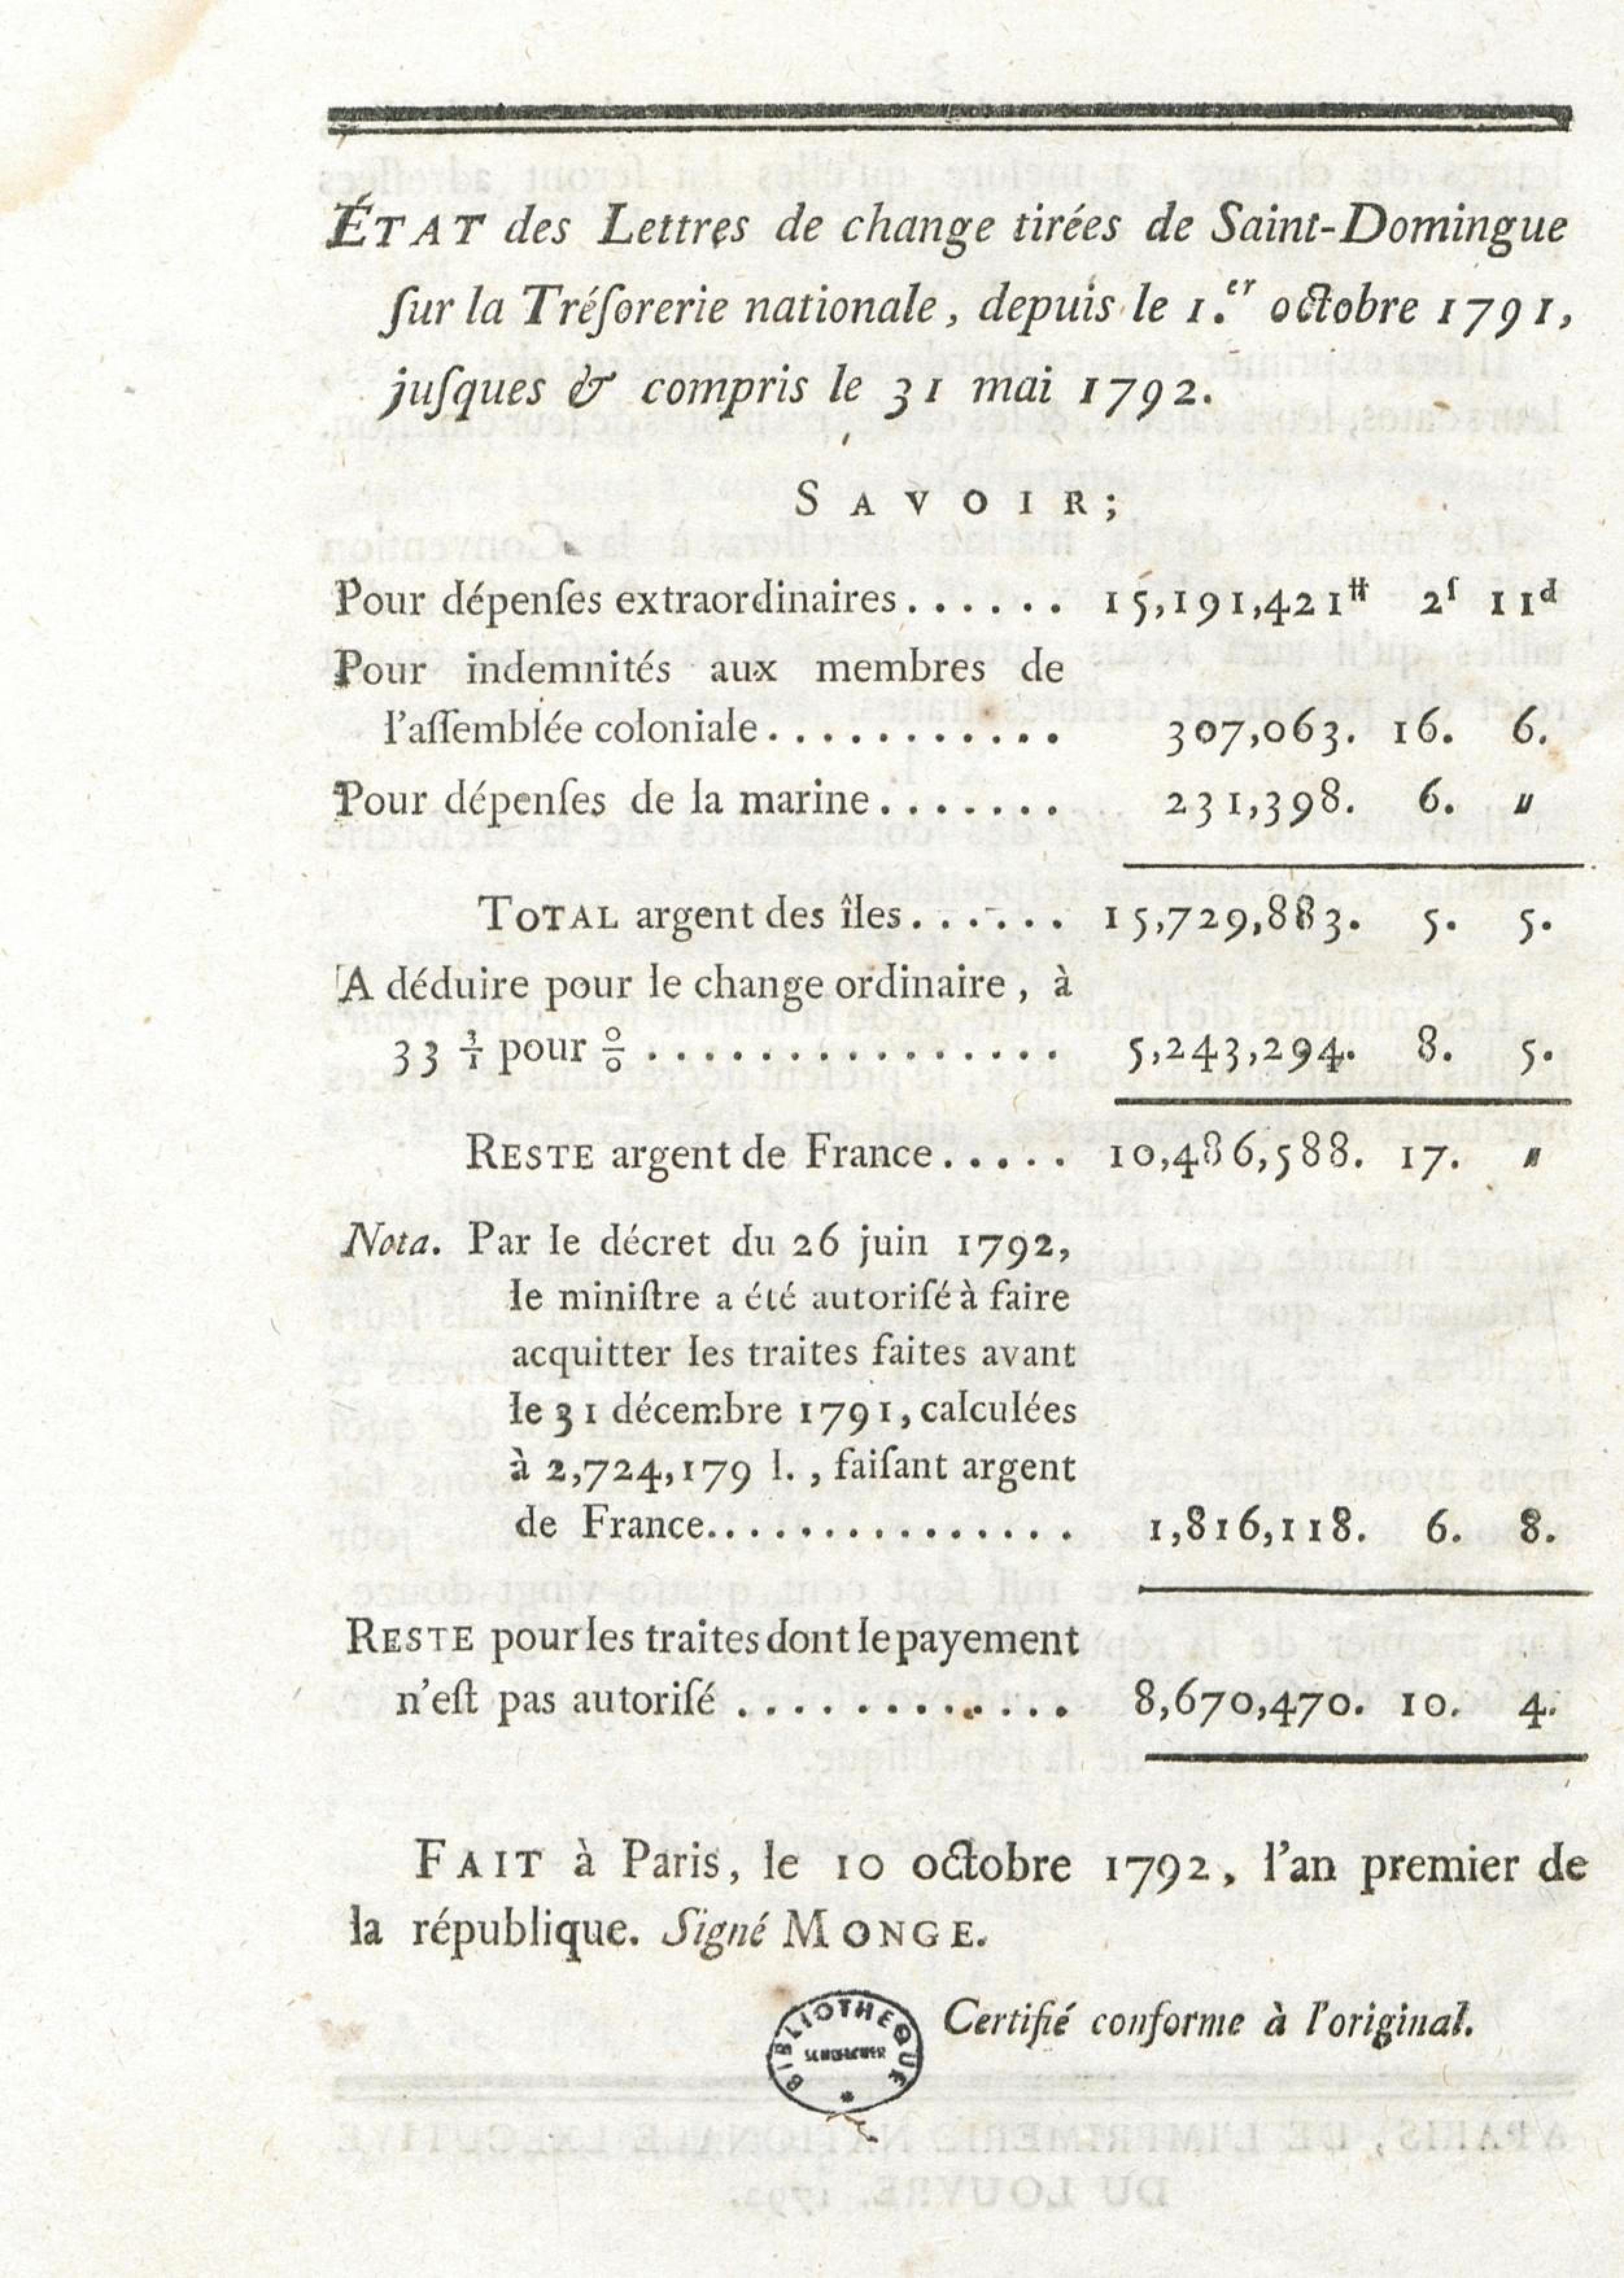 ÉTAT des Lettres de change tirées de Saint-Domingue
ſur la Tréſorerie nationale, depuis le 1.er octobre 1791,
juſques & compris le 31 mai 1792.
SAVOIR;
Pour dépenſes extraordinaires...... 15,191,421₶ 2ſ 11d
Pour indemnités aux membres de
l'aſſemblée coloniale........... 307,063. 16. 6.
Pour dépenſes de la marine....... 231,398. 6. "
TOTAL argent des îles...... 15,729,883. 5. 5.
A déduire pour le change ordinaire, à
33 3/1 pour 0/0............... 5,243,294. 8. 5.
RESTE argent de France..... 10,486,588. 17. "
Nota. Par le décret du 26 juin 1792,
le miniſtre a été autoriſé à faire
acquitter les traites faites avant
le 31 décembre 1791, calculées
à 2,724,179 l., faiſant argent
de France.............. 1,816,118. 6. 8.
RESTE pour les traites dont le payement
n'eſt pas autoriſé............ 8,670,470. 10. 4.
FAIT à Paris, le 10 octobre 1792, l'an premier de
la république. Signé MONGE.
Certifié conforme à l'original.
BIBLIOTHEQUE
SCHOELCHER